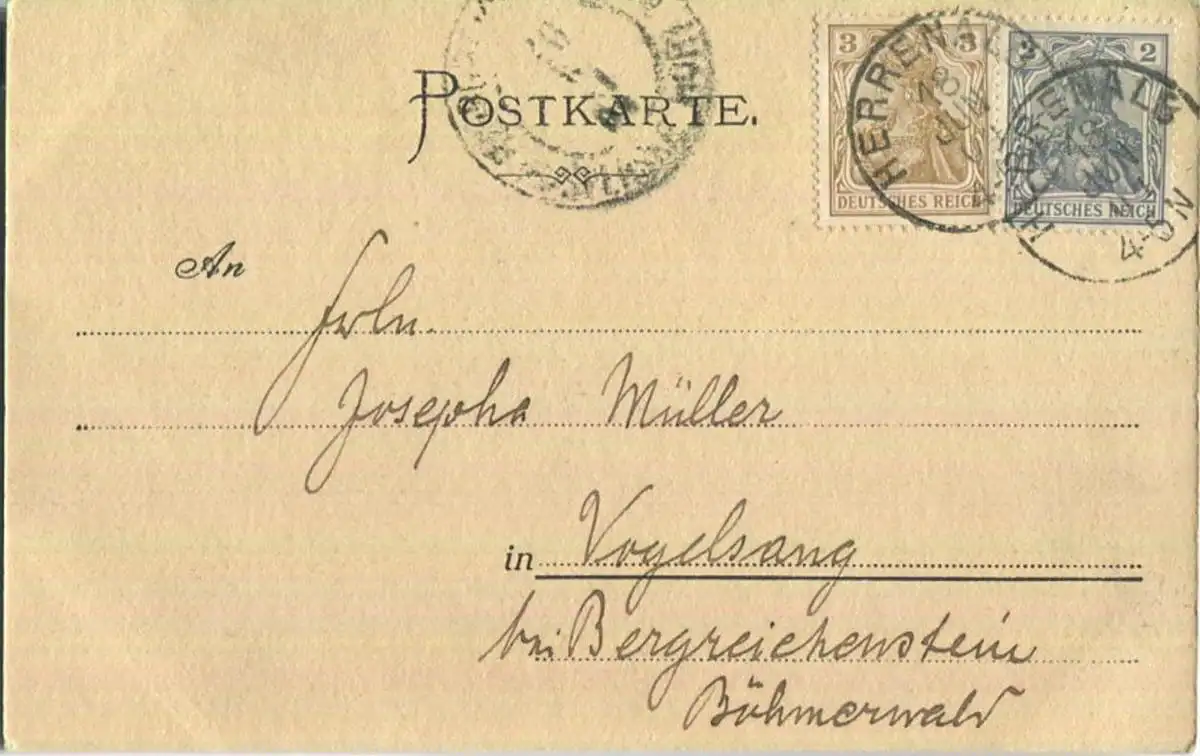 POSTKARTE.
3 3
DEUTSCHES REICH
2 2
DEUTSCHES REICH
HERRENALB
JUN
HERRENALB
19
JUN
4-5N
An
Frln.
Josepha Müller
in Vogelsang
bei Bergreichenstein
Böhmerwald